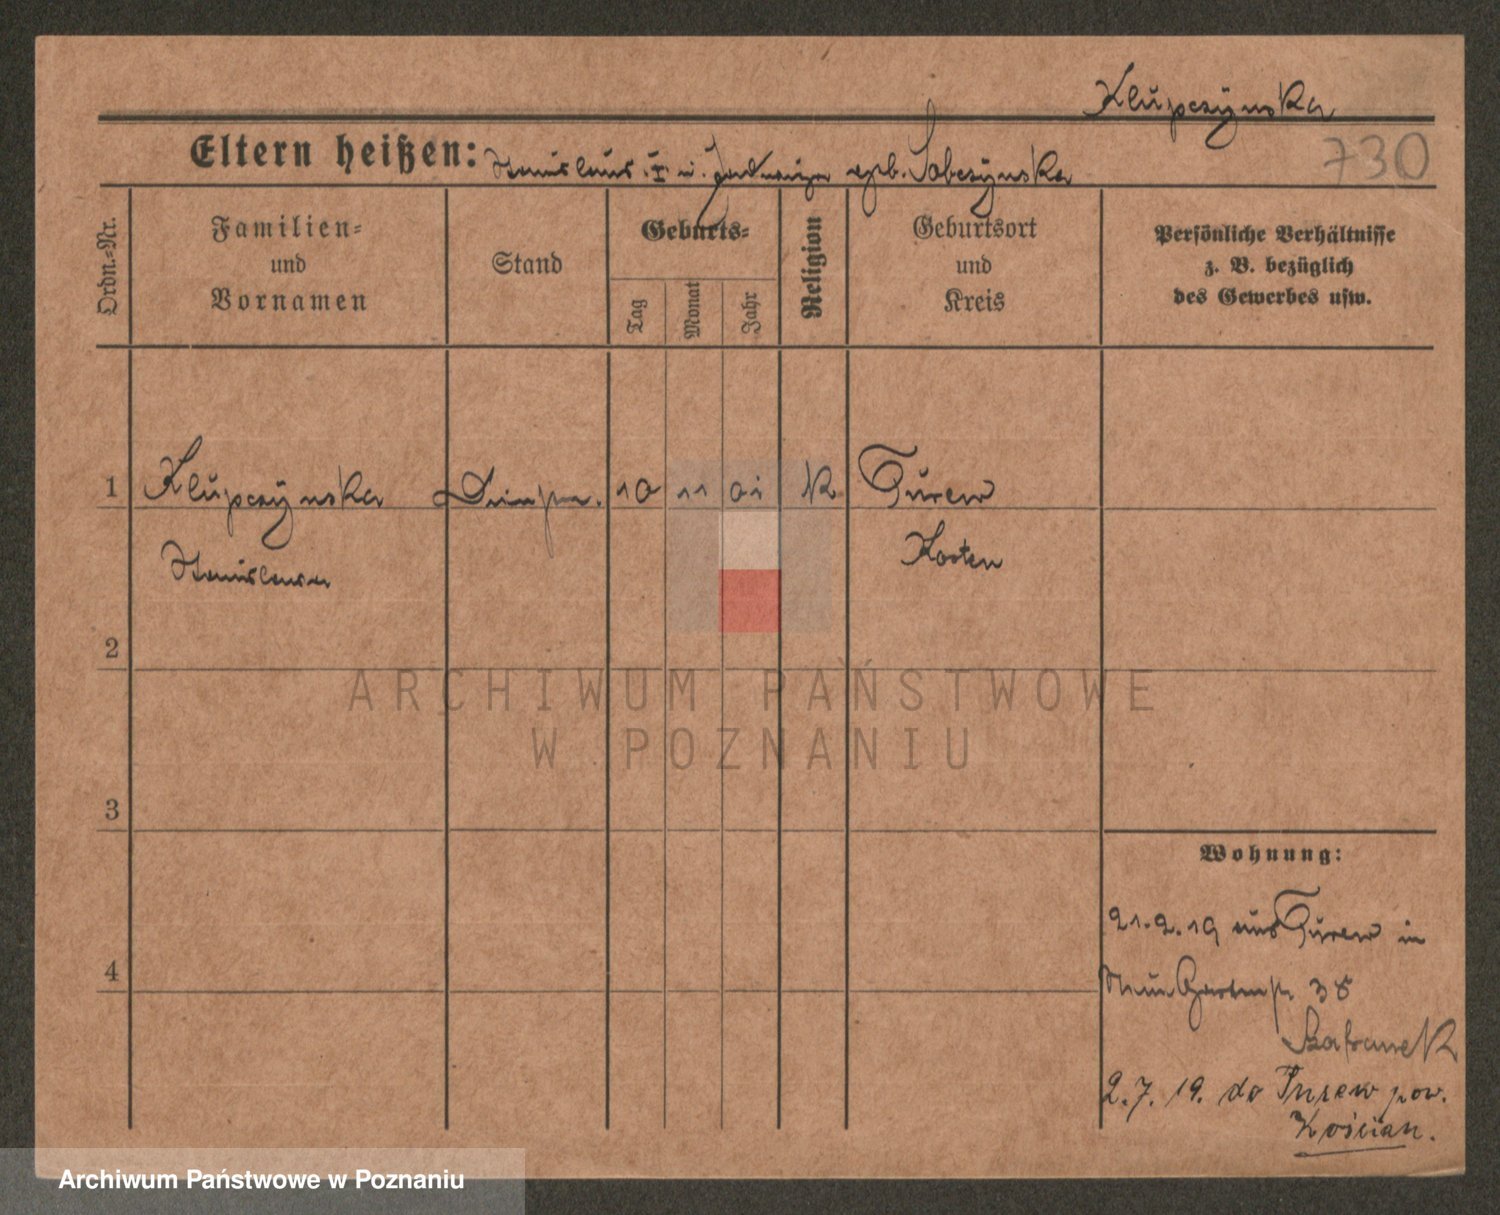 Klupczynska
730
Eltern heißen: Stanislaus I u. Jadwiga geb. Sobczynska
Ordn.-Nr.
Familien-
und
Vornamen
Stand
Geburts-
Tag
Monat
Jahr
Religion
Geburtsort
und
Kreis
Persönliche Verhältnisse
z. B. bezüglich
des Gewerbes usw.
1 Klupczynska 10 11 01 K Turew
Stanislawa Kosten
2
3
4
Wohnung:
21.2.19 aus Turew in
Gartenstr 38
Szafranek
2.7.19. do Turew pow.
Kościan.
ARCHIWUM PAŃSTWOWE
W POZNANIU
Archiwum Państwowe w Poznaniu